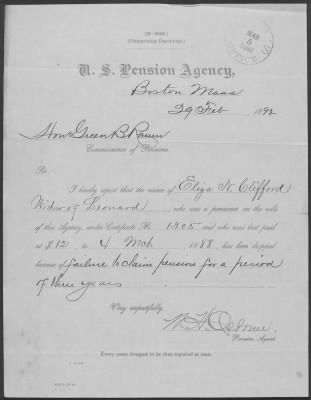 (3—402.)
(PENSIONER DROPPED.)
MAR
5
1892
U. S. Pension Agency,
Boston Mass
29 Feb 1892
Hon Green B Raum
Commissioner of Pensions.
Sir:
I hereby report that the name of Eliza N. Clifford
Widow of Leonard who was a pensioner on the rolls
of this Agency, under Certificate No. 1505 and who was last paid
at $12, to 4 Mch 1888 has been dropped
because of failure to claim pension for a period
of three years
Very respectfully,
W. H. Osborne
Pension Agent.
Every name dropped to be thus reported at once.